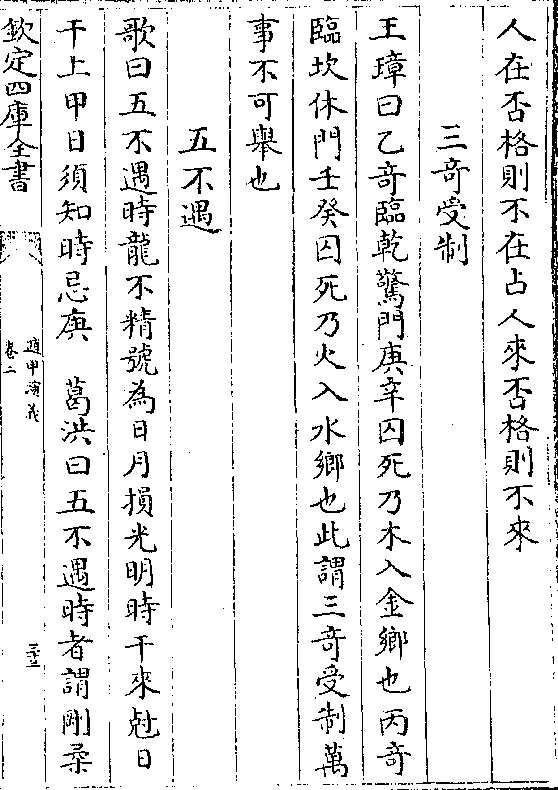 人在否格則不在占人來否格則不來
三奇受制
王璋曰乙奇臨乾驚門庚辛囚死乃木入金鄉也丙奇
臨坎休門壬癸囚死乃火入水鄉也此謂三奇受制萬
事不可舉也
五不遇
歌曰五不遇時龍不精號為日月損光明時干來尅日
干上甲日須知時忌庚　葛洪曰五不遇時者謂剛柔
欽定四庫全書
遁甲演義
卷二